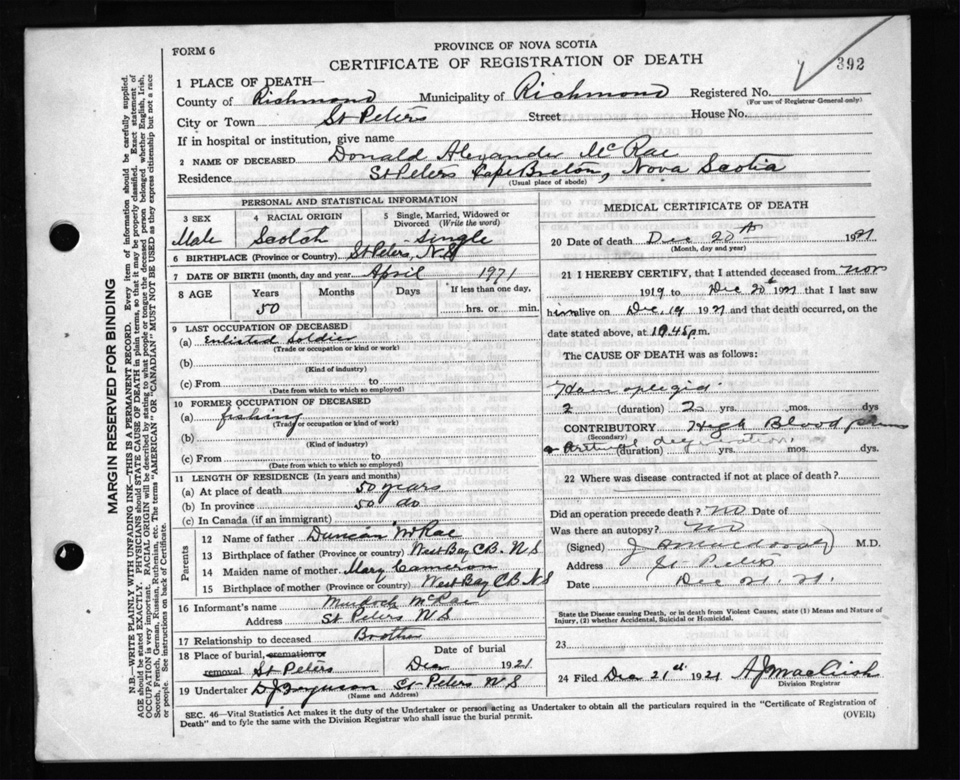 FORM 6
PROVINCE OF NOVA SCOTIA
CERTIFICATE OF REGISTRATION OF DEATH
392
1 PLACE OF DEATH—
County of Richmond Municipality of Richmond Registered No.
(For use of Registrar General only)
City or Town St Peters Street House No.
If in hospital or institution, give name
2 NAME OF DECEASED Donald Alexander McRae
Residence St Peters Cape Breton, Nova Scotia
(Usual place of abode)
PERSONAL AND STATISTICAL INFORMATION
3 SEX 4 RACIAL ORIGIN 5 Single, Married, Widowed or Divorced (Write the word)
Male Scotch Single
6 BIRTHPLACE (Province or Country) St Peters, N.S
7 DATE OF BIRTH (month, day and year April 1971
8 AGE Years Months Days If less than one day,
50 hrs. or min.
9 LAST OCCUPATION OF DECEASED
(a) Enlisted Soldier
(Trade or occupation or kind or work)
(b)
(Kind of industry)
(c) From to
(Date from which to which so employed)
10 FORMER OCCUPATION OF DECEASED
(a) fishing
(Trade or occupation or kind of work)
(b)
(Kind of industry)
(c) From to
(Date from which to which so employed)
11 LENGTH OF RESIDENCE (In years and months)
(a) At place of death 50 years
(b) In province 50 do
(c) In Canada (if an immigrant)
Parents
12 Name of father Duncan McRae
13 Birthplace of father (Province or country) West Bay C.B. N S
14 Maiden name of mother Mary Cameron
15 Birthplace of mother (Province or country) West Bay C B N S
16 Informant's name Murdock McRae
Address St Peters N S
17 Relationship to deceased Brother
18 Place of burial, cremation or removal St Peters Date of burial Dec 1921
19 Undertaker D J Ferguson St Peters N S
(Name and Address)
MEDICAL CERTIFICATE OF DEATH
20 Date of death Dec 20th 1921
(Month, day and year)
21 I HEREBY CERTIFY, that I attended deceased from Nov
1919 to Dec 20th 1921 that I last saw
him alive on Dec 19 1921 and that death occurred, on
date stated above, at 10.45 p m.
The CAUSE OF DEATH was as follows:
2 (duration) 2 yrs. mos. dys
CONTRIBUTORY High Blood
(Secondary)
(duration) yrs. mos. dys.
22 Where was disease contracted if not at place of death?
Did an operation precede death? No Date of
Was there an autopsy? No
(Signed) M.D.
Address St Peters
Date Dec 21. 21.
State the Disease causing Death, or in death from Violent Causes, state (1) Means and Nature of
Injury, (2) whether Accidental, Suicidal or Homicidal.
23
24 Filed Dec 21st 1921
Division Registrar
SEC. 46—Vital Statistics Act makes it the duty of the Undertaker or person acting as Undertaker to obtain all the particulars required in the "Certificate of Registration of
Death" and to fyle the same with the Division Registrar who shall issue the burial permit. (OVER)
MARGIN RESERVED FOR BINDING
N.B.—WRITE PLAINLY WITH UNFADING INK—THIS IS A PERMANENT RECORD. Every item of information should be carefully supplied.
AGE should be stated EXACTLY. PHYSICIANS should STATE CAUSE OF DEATH in plain terms, so that it may be properly classified. Exact statement of
OCCUPATION is very important. RACIAL ORIGIN will be described by stating to what people or tongue the deceased person belonged whether English, Irish,
Scotch, French, German, Russian, Ruthenian, etc. The terms "AMERICAN" OR "CANADIAN" MUST NOT BE USED as they express citizenship but not a race
or people. See instructions on back of Certificate.